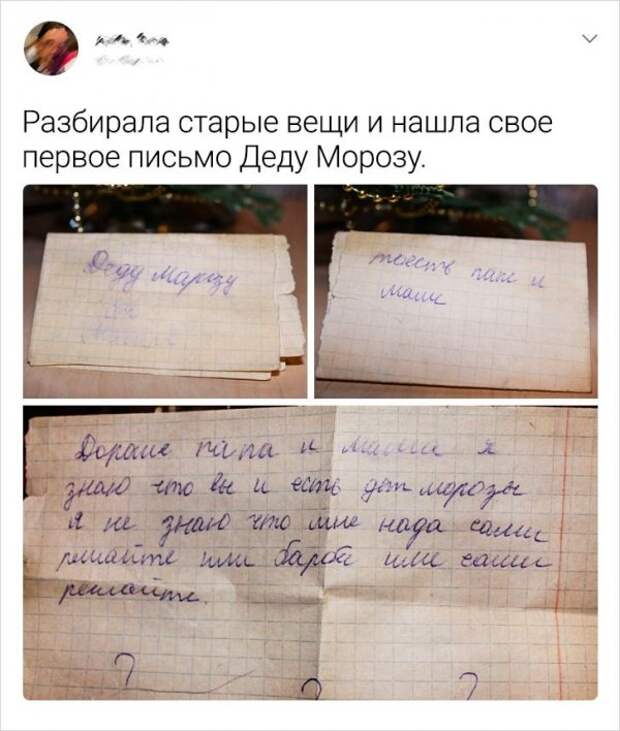 Разбирала старые вещи и нашла свое
первое письмо Деду Морозу.
Деду Марозу
тоесть папе и
маме
Дорагие папа и мама я
знаю что вы и есть дет морозы
Я не знаю что мне нада сами
решайте или барби или сами
решайте.
? ? ?